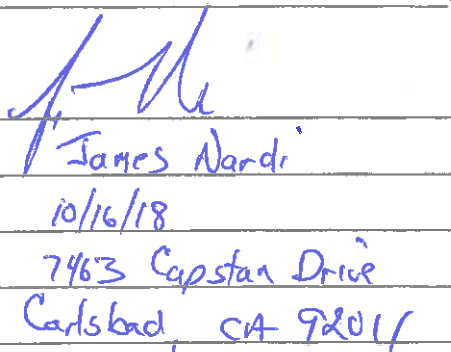 James Nardi
10/16/18
7463 Capstan Drive
Carlsbad, CA 92011